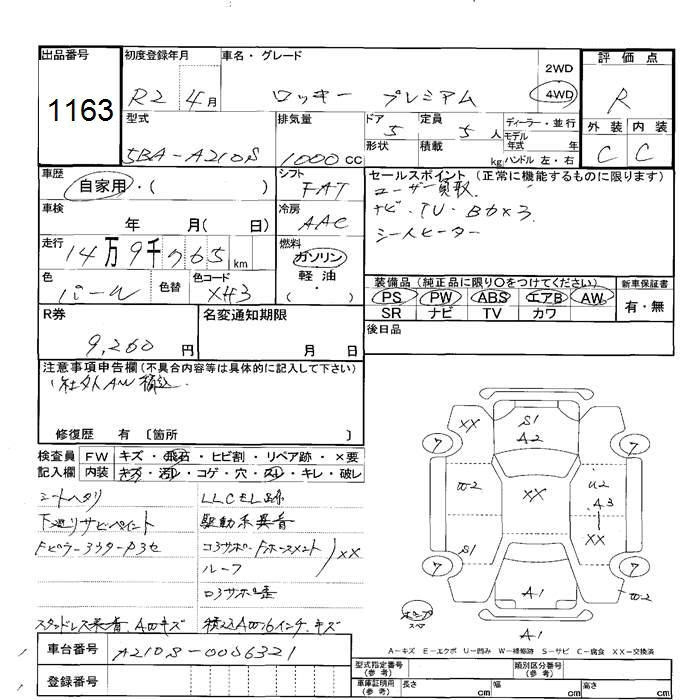 出品番号
1163
初度登録年月
R2 年 4月
車名・グレード
ロッキー プレミアム
2WD
4WD
評価点
R
型式
5BA-A210S
排気量
1000 CC
ドア 5
形状
定員 5 人
積載 kg
ディーラー・並行
モデル年式 年
ハンドル 左・右
外装 内装
C C
車歴
自家用・( )
シフト
FAT
セールスポイント (正常に機能するものに限ります)
ユーザー買取
ナビ・TV・Bカメラ
シートヒーター
車検
年 月( 日)
冷房
AAC
走行
14万9千765 km
燃料
ガソリン
軽・油
( )
色
パール
色替
色コード
XH3
装備品 (純正品に限り○をつけてください)
PS PW ABS エアB AW
SR ナビ TV カワ
新車保証書
有・無
R券
9,260 円
名変通知期限
月 日
後日品
注意事項申告欄 (不具合内容等は具体的に記入して下さい)
社外AW積込
修復歴 有 〔箇所 〕
検査員記入欄
FW キズ・飛石・ヒビ割・リペア跡・×要
内装 キズ・汚れ・コゲ・穴・スレ・キレ・破レ
シートヘタリ
LLCEL跡
下廻りサビペイント
駆動系異音
ルーフ
XX
スタッドレス装着、AWキズ
積込AW16インチ、キズ
車台番号
A210S-0056321
登録番号
XX S1 A2
7 7
W2 XX U2 A3
XX
S1
7 7
A1 W2
スペア
A1
A-キズ E-エクボ U-凹み W-補修跡 S-サビ C-腐食 XX-交換済
型式指定番号 (参考)
類別区分番号 (参考)
車庫証明用 (参考)
長さ cm 幅 cm 高さ cm